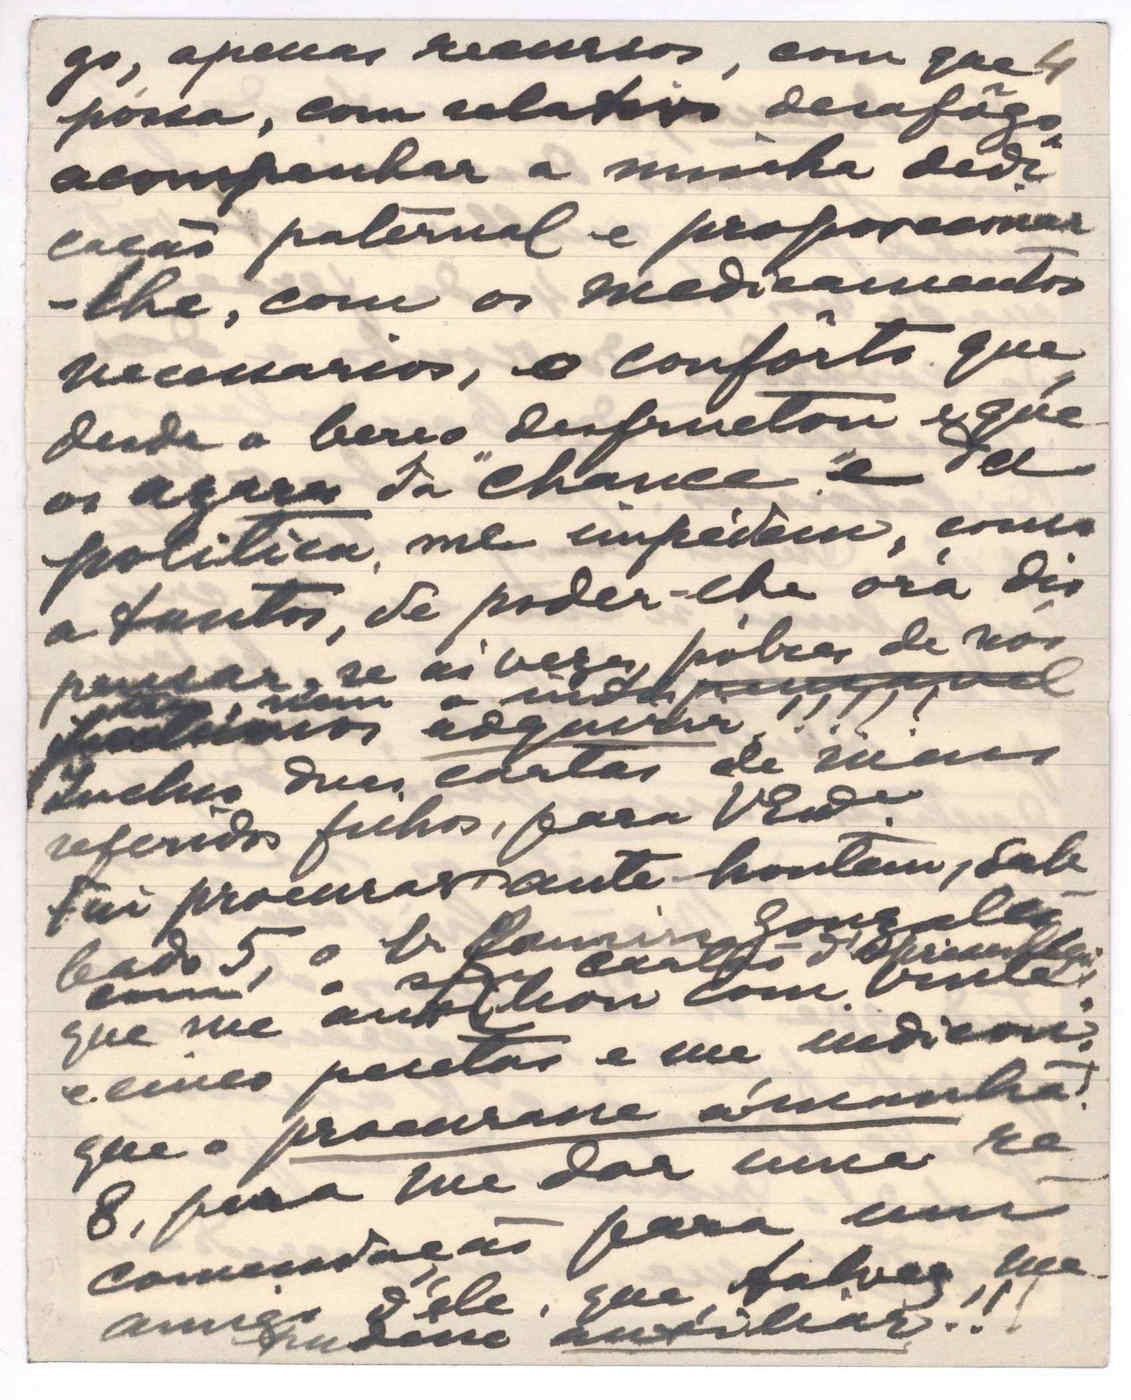 go, apenas recursos, com que 4
póssa, com relativo desafôgo
acompanhar a minha dedi
cação paternal e proporcionar
-lhe, com os medicamentos
necessarios, o confôrto que
desde o berço desfructou e que
os azares da "chance" e da
politica, me impédem, como
a tantos, de poder-lhe óra dis
pensar, se ás vezes, póbres de nós
nem o indispensavel
adquirir!!!!!!
Incluo duas cartas de meus
referidos filhos, para VExª.
Fui procurar ante-hontem, sab
bado 5, o Sr Ramiro Gonzales
com o seu cartão d'
que me auxiliou com vinte
e cinco pesetas e me indicou,
que o procurasse ámanhã
8, para me dar uma re
comendação para um
amigo d'éle, que, talvez, me
pudesse auxiliar!!!